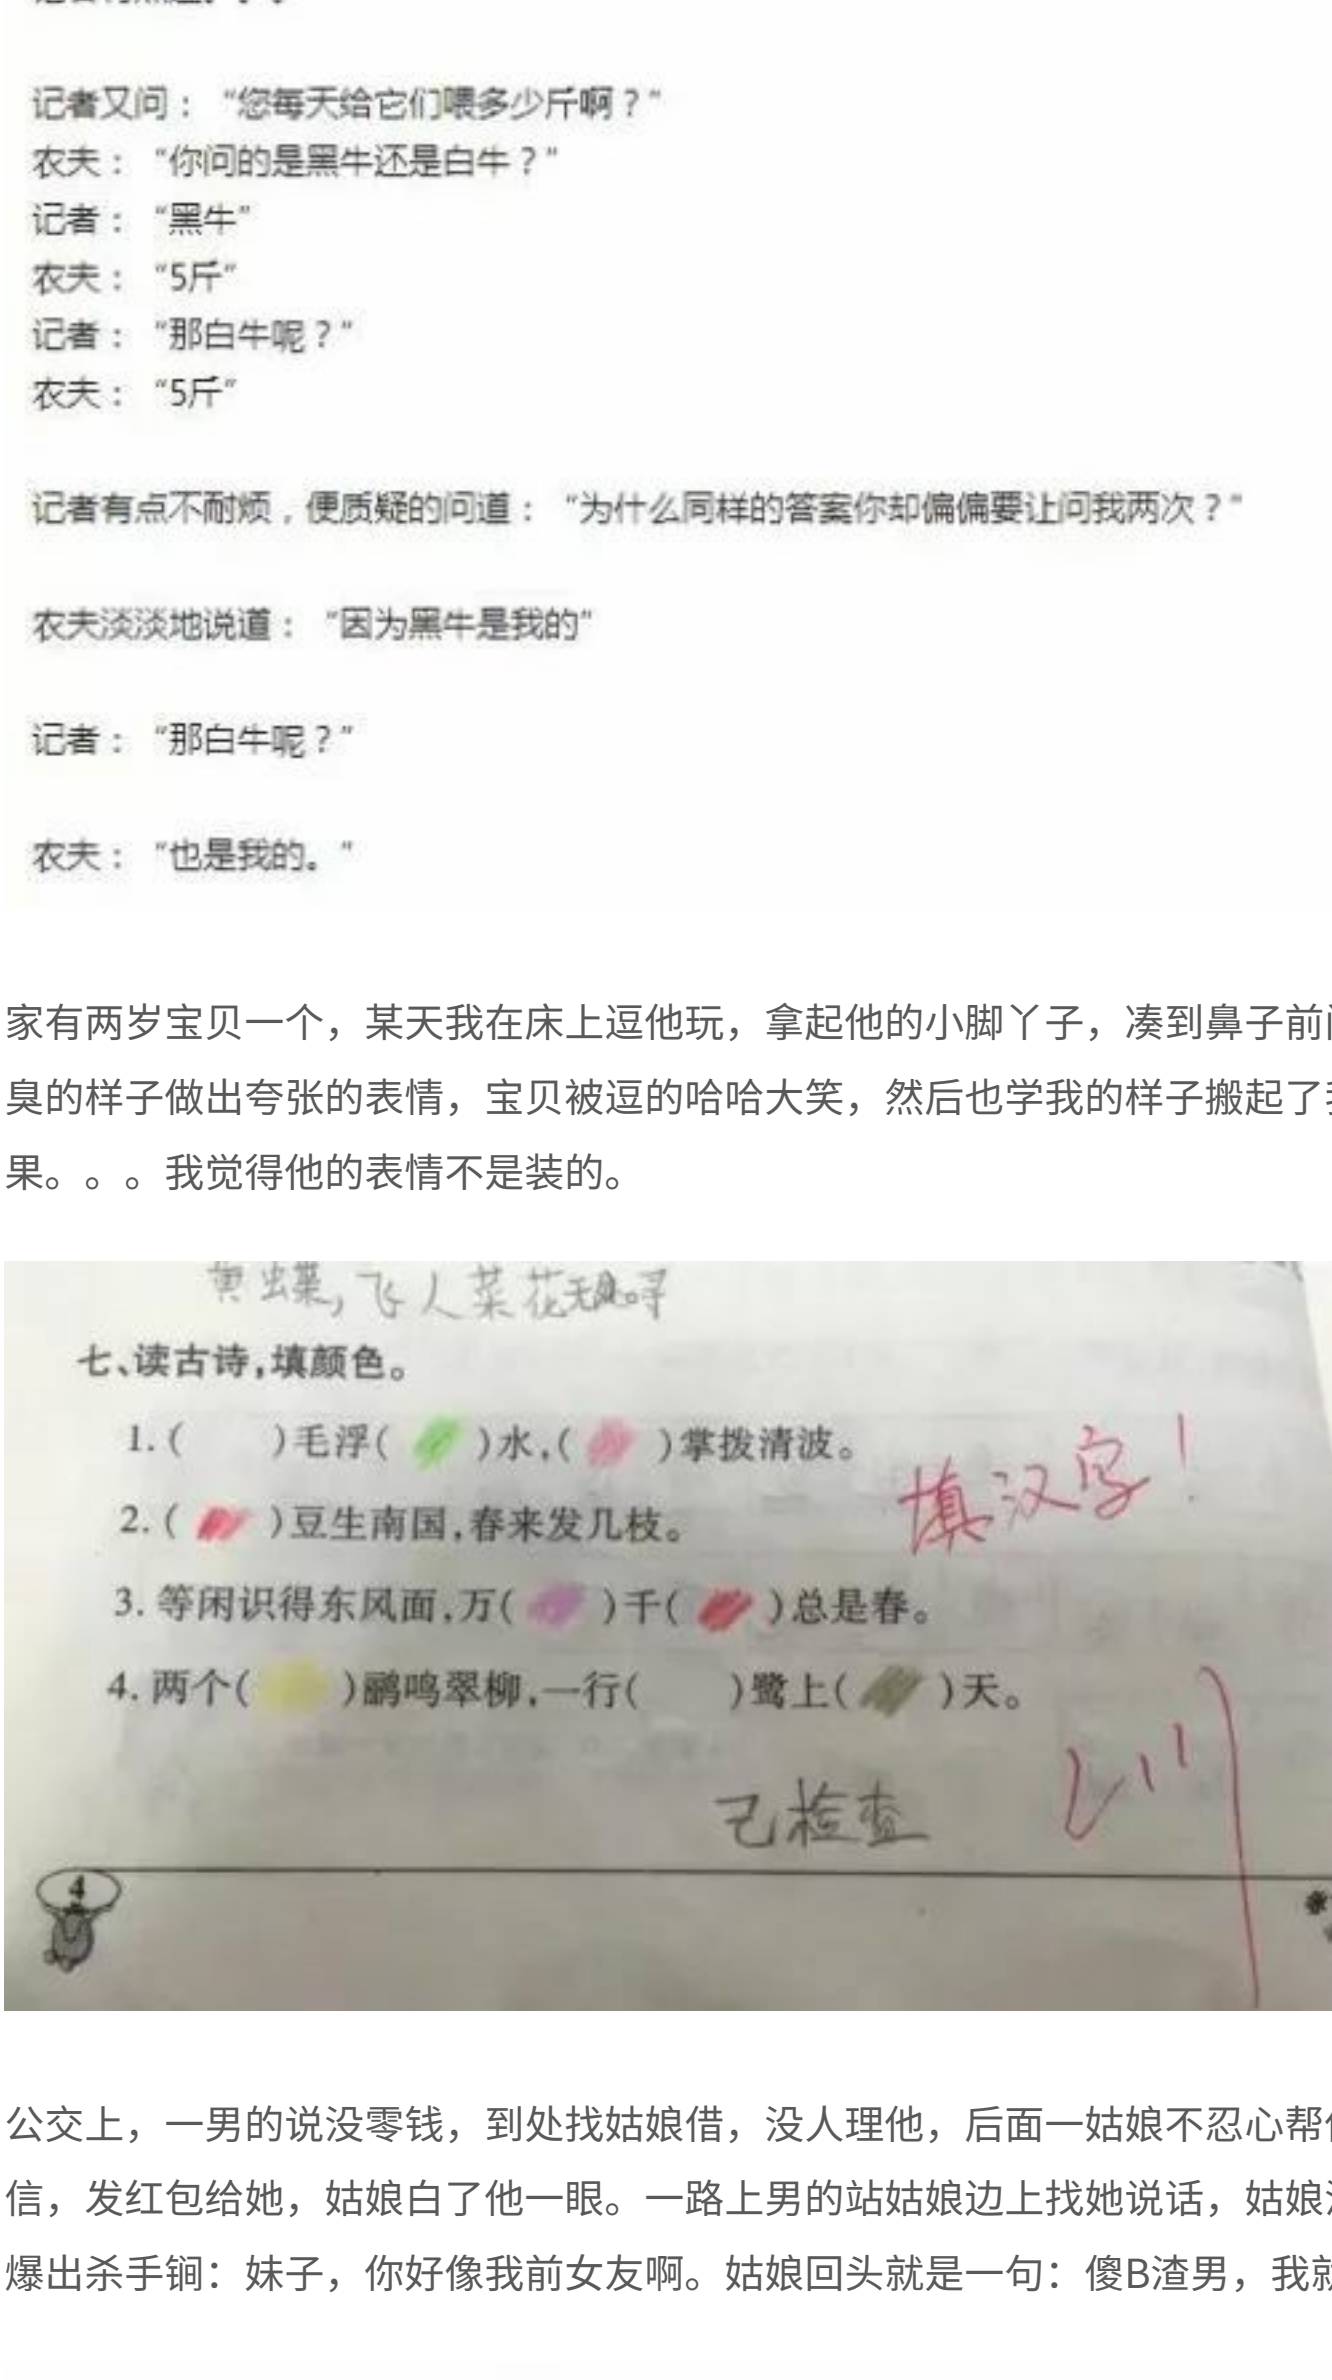 记者又问：“您每天给它们喂多少斤啊？”
农夫：“你问的是黑牛还是白牛？”
记者：“黑牛”
农夫：“5斤”
记者：“那白牛呢？”
农夫：“5斤”
记者有点不耐烦，便质疑的问道：“为什么同样的答案你却偏偏要让问我两次？”
农夫淡淡地说道：“因为黑牛是我的”
记者：“那白牛呢？”
农夫：“也是我的。”
家有两岁宝贝一个，某天我在床上逗他玩，拿起他的小脚丫子，凑到鼻子前
臭的样子做出夸张的表情，宝贝被逗的哈哈大笑，然后也学我的样子搬起了
果。。。我觉得他的表情不是装的。
黄蝶，飞人菜花无处寻
七、读古诗，填颜色。
1.( )毛浮( )水，( )掌拨清波。
填汉字！
2.( )豆生南国，春来发几枝。
3.等闲识得东风面，万( )千( )总是春。
4.两个( )鹂鸣翠柳，一行( )鹭上( )天。
己检查
4
公交上，一男的说没零钱，到处找姑娘借，没人理他，后面一姑娘不忍心帮
信，发红包给她，姑娘白了他一眼。一路上男的站姑娘边上找她说话，姑娘
爆出杀手锏：妹子，你好像我前女友啊。姑娘回头就是一句：傻B渣男，我就